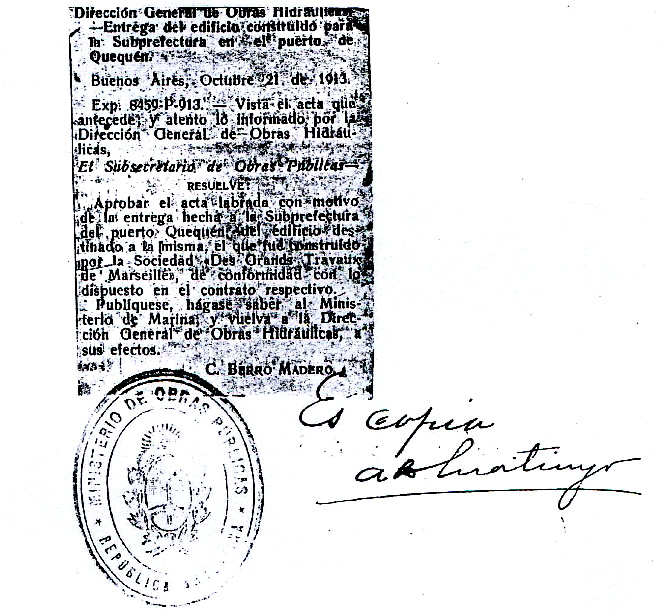 Dirección General de Obras Hidráulicas.
—Entrega del edificio construído para
la Subprefectura en el puerto de
Quequén.
Buenos Aires, Octubre 21 de 1913.
Exp. 8459-P-913. — Vista el acta que
antecede; y atento lo informado por la
Dirección General de Obras Hidráu-
licas,
El Subsecretario de Obras Públicas—
RESUELVE:
Aprobar el acta labrada con motivo
de la entrega hecha a la Subprefectura
del puerto Quequén, del edificio des-
tinado a la misma, el que fué construído
por la Sociedad «Des Grands Travaux
de Marseille», de conformidad con lo
dispuesto en el contrato respectivo.
Publíquese, hágase saber al Minis-
terio de Marina, y vuelva a la Direc-
ción General de Obras Hidráulicas, a
sus efectos.
C. BERRO MADERO.
Es copia
MINISTERIO DE OBRAS PÚBLICAS
REPÚBLICA